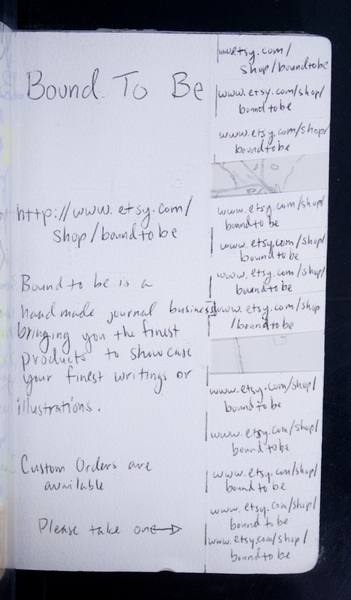 Bound To Be
http://www.etsy.com/
shop/boundtobe
Bound to be is a
handmade journal business
bringing you the finest
products to showcase
your finest writings or
illustrations.
Custom Orders are
available
Please take one
www.etsy.com/
shop/boundtobe
www.etsy.com/shop/
boundtobe
www.etsy.com/shop/
boundtobe
www.etsy.com/shop/
boundtobe
www.etsy.com/shop/
boundtobe
www.etsy.com/shop/
boundtobe
www.etsy.com/shop
/boundtobe
www.etsy.com/shop/
boundtobe
www.etsy.com/shop/
boundtobe
www.etsy.com/shop/
boundtobe
www.etsy.com/shop/
boundtobe
www.etsy.com/shop/
boundtobe